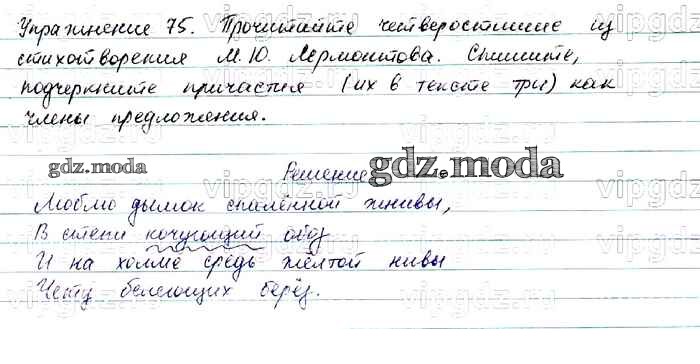 Упражнение 75. Прочитайте четверостишие из
стихотворения М. Ю. Лермонтова. Спишите,
подчеркните причастия (их в тексте три) как
члены предложения.
gdz.moda
Решение
gdz.moda
Люблю дымок спалённой жнивы,
В степи кочующий обоз
И на холме средь жёлтой нивы
Чету белеющих берёз.